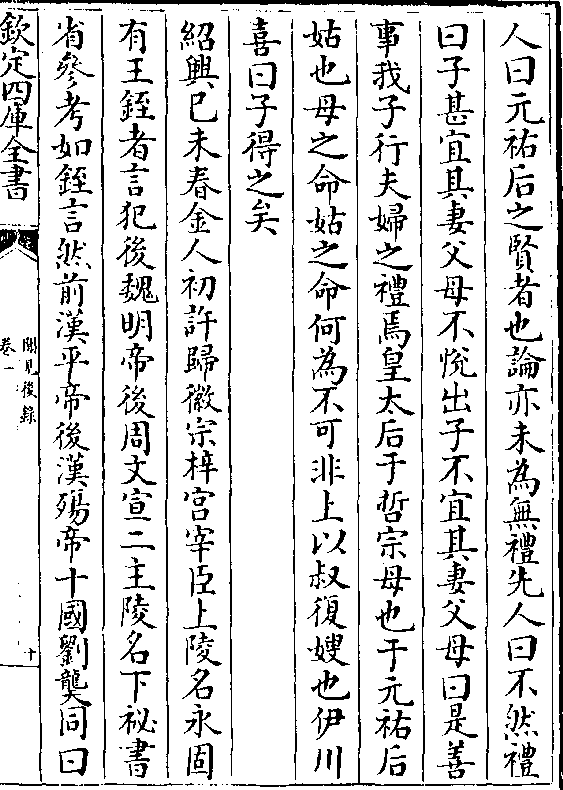 人曰元祐后之賢者也論亦未為無禮先人曰不然禮
曰子甚宜其妻父母不悅出子不宜其妻父母曰是善
事我子行夫婦之禮焉皇太后于哲宗母也于元祐后
姑也母之命姑之命何為不可非上以叔復嫂也伊川
喜曰子得之矣
紹興己未春金人初許歸徽宗梓宮宰臣上陵名永固
有王銍者言犯後魏明帝後周文宣二主陵名下祕書
省參考如銍言然前漢平帝後漢殤帝十國劉龑同曰
欽定四庫全書
聞見後錄
卷一
十